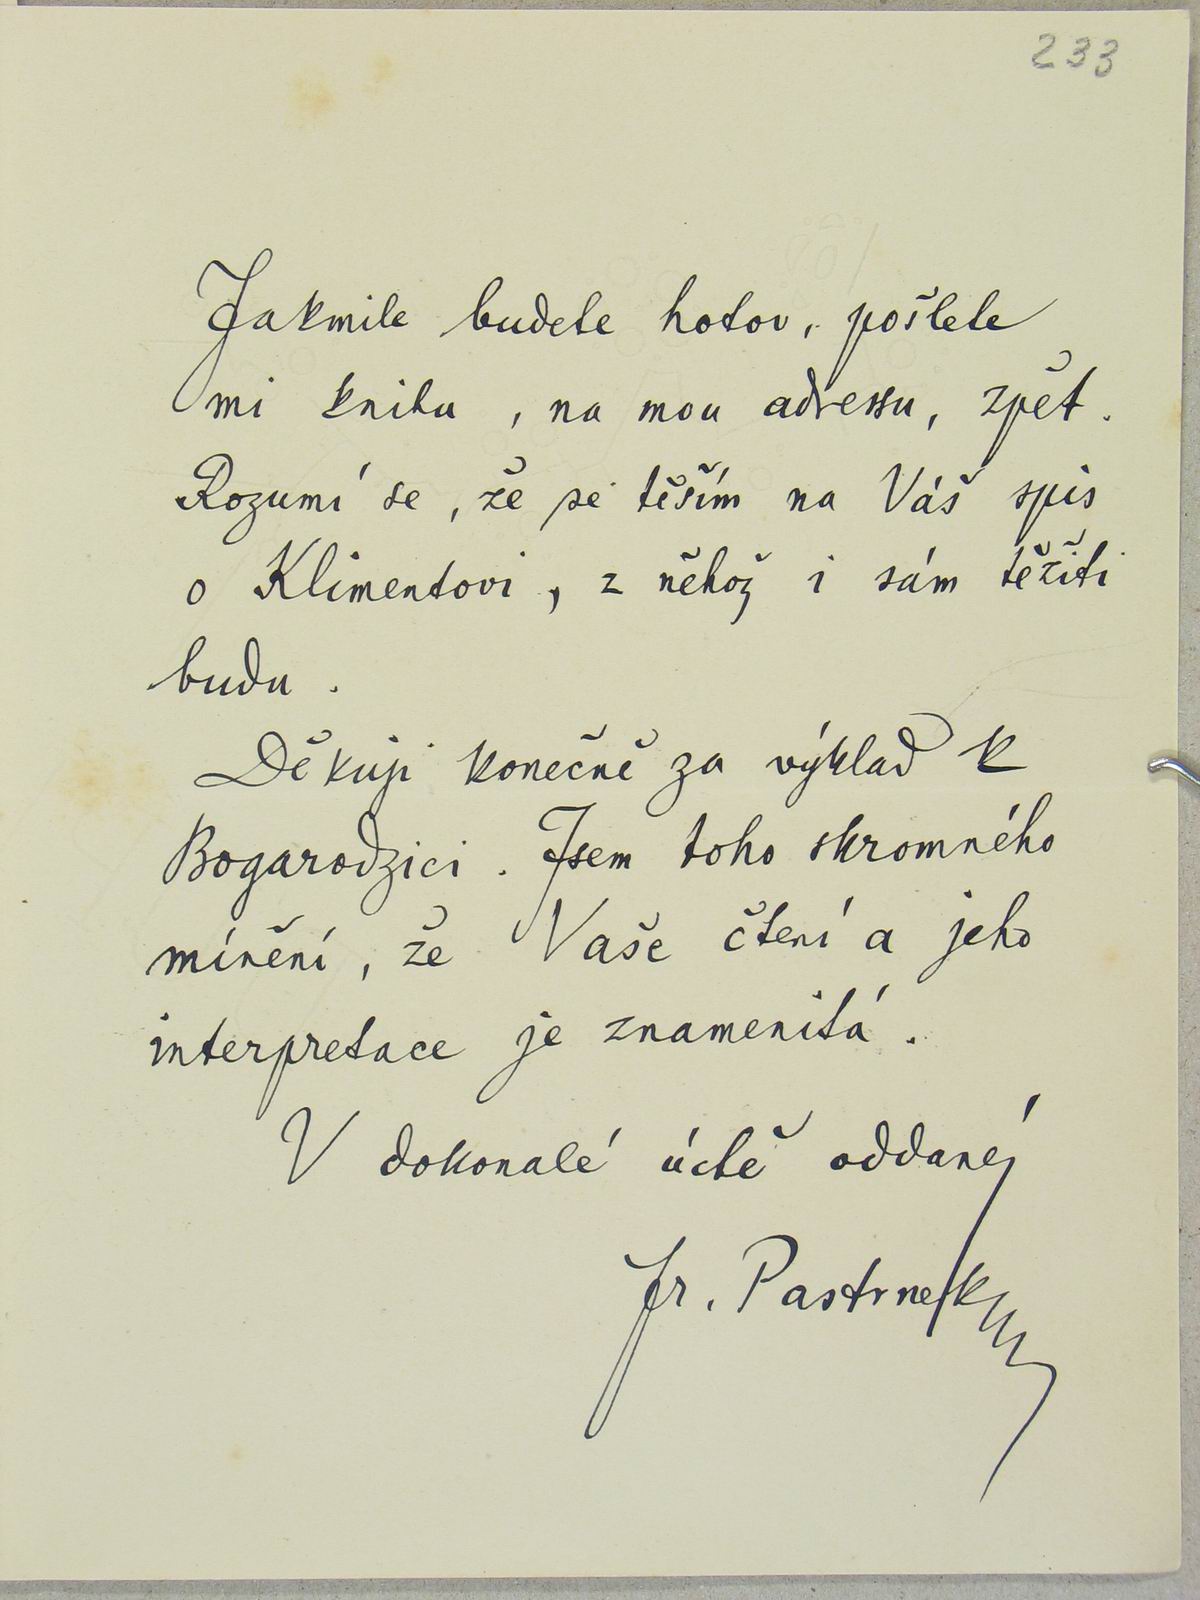 233
Jakmile budete hotov, pošlete
mi knihu, na mou adressu, zpět.
Rozumí se, že se těším na Váš spis
o Klimentovi, z něhož i sám těžiti
budu.
Děkuji konečně za výklad k
Bogarodzici. Jsem toho skromného
mínění, že Vaše čtení a jeho
interpretace je znamenitá.
V dokonalé úctě oddaný
Fr. Pastrnek